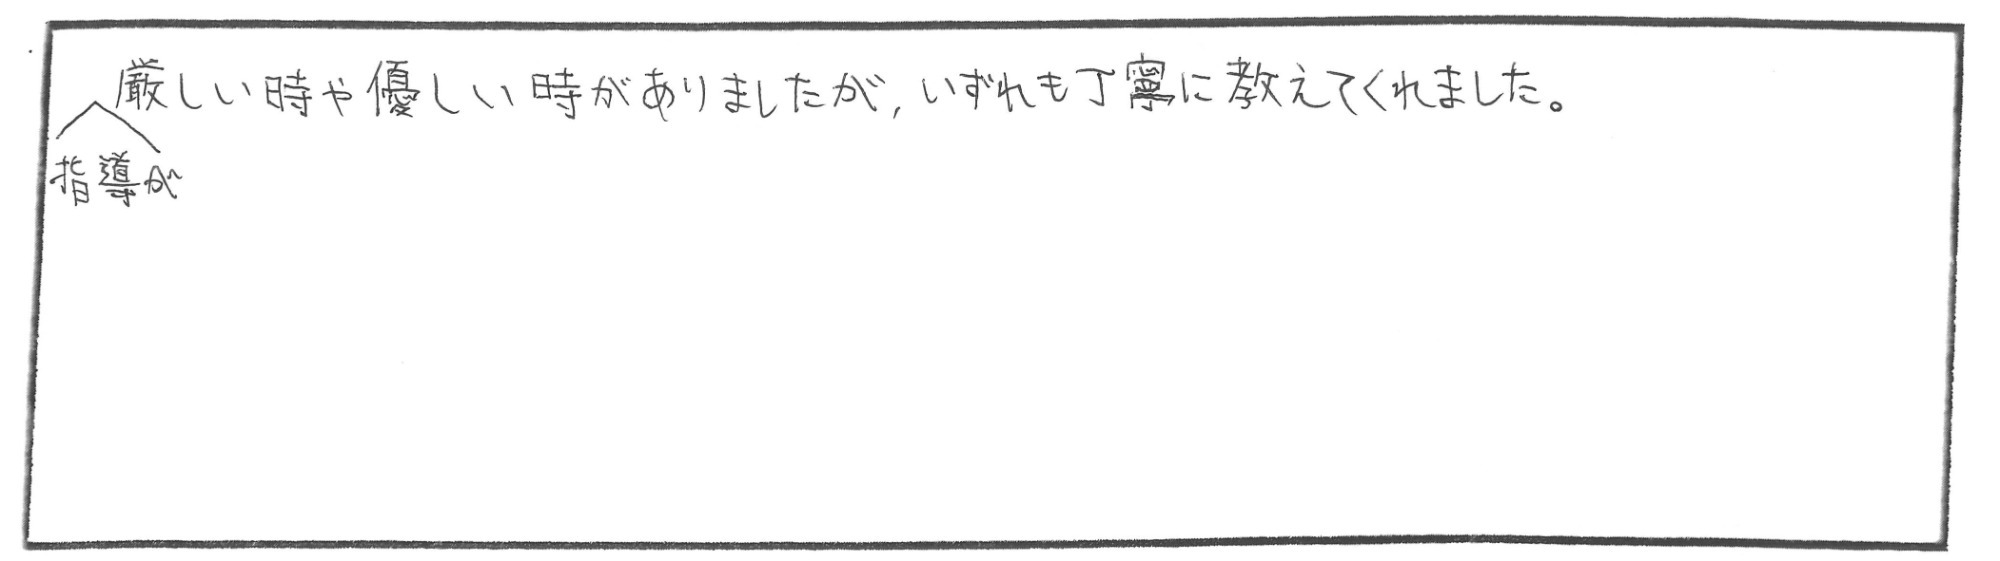 厳しい時や優しい時がありましたが，いずれも丁寧に教えてくれました。
指導が